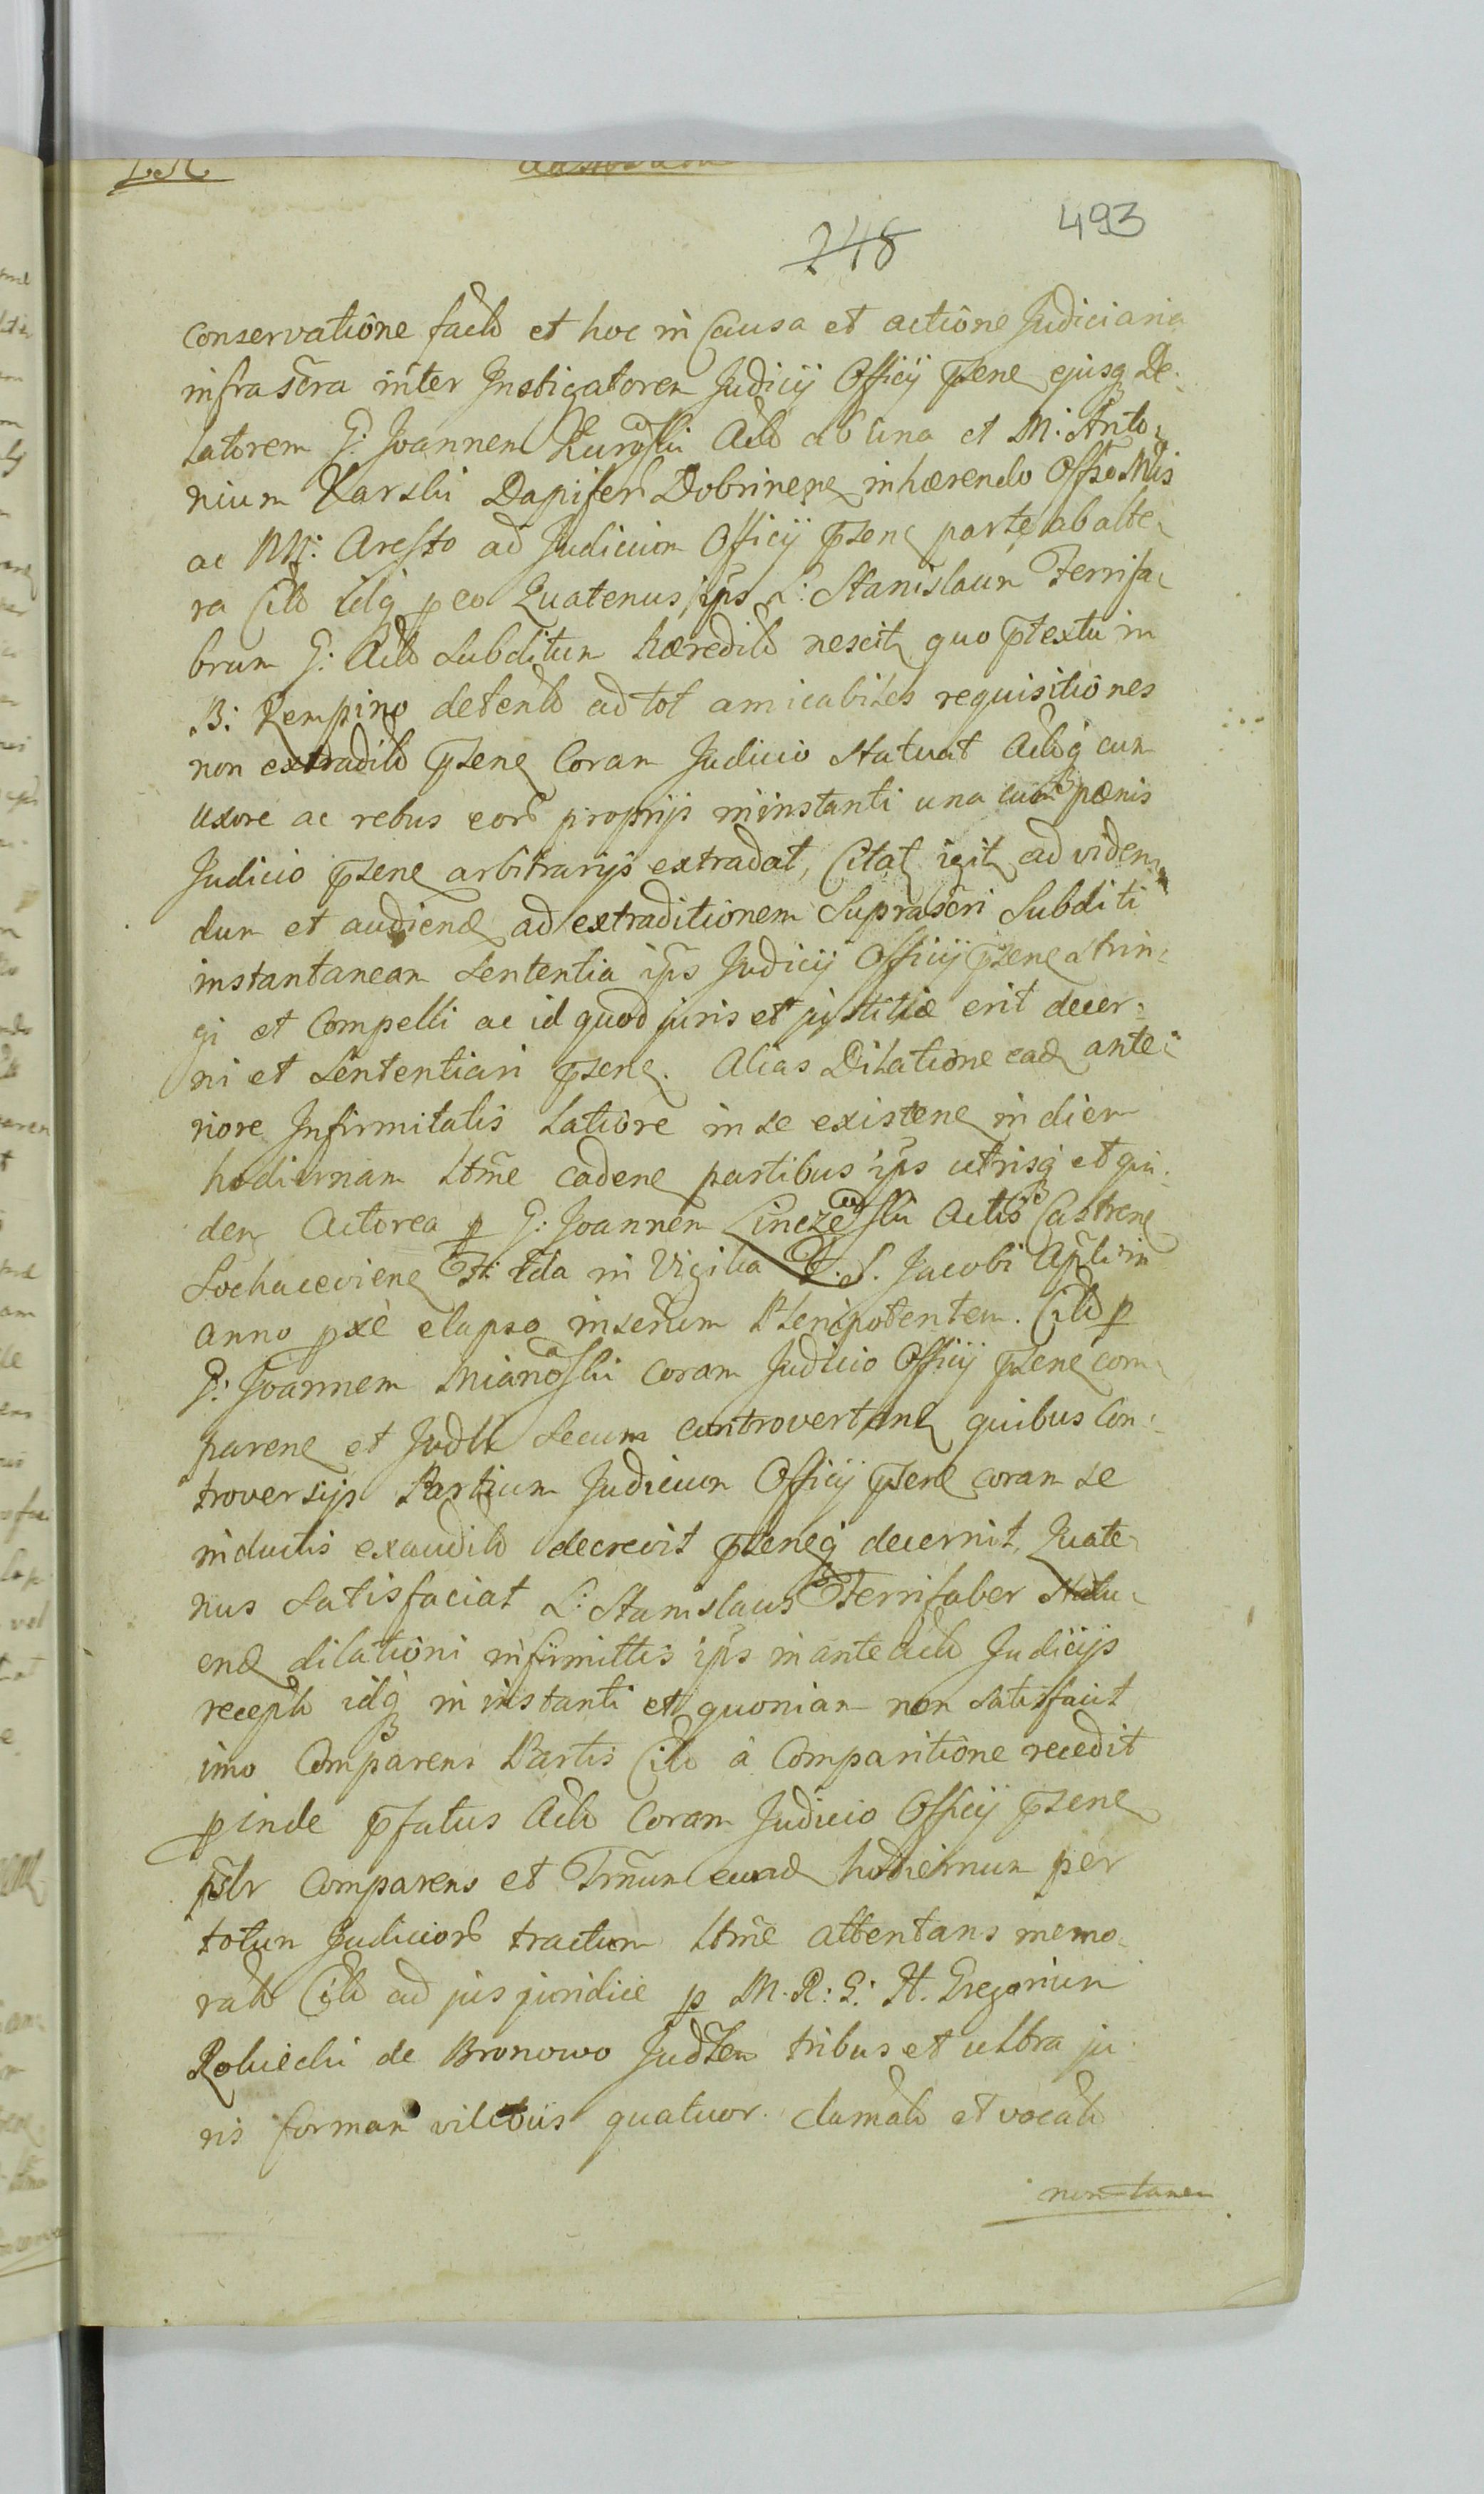 248 493
conservatiōne facto et hoc in Causa et actiōne Judiciaria
infrascra inter Instigatorem Judicij Officij psene ejusq De=
latorem G: Joannem Act ab una et M: Anto=
nium Karski Dapifer Dobrinens inhærendo
ac MN: Aresto ad Judicium Officij psene parte ab alte=
ra Citt idq p eo Quatenus ips L: Stanislaum Ferrifa=
brum G: Act Subditum hæredit nescit quo ptextu in
B: Kempino detent ad tot amicabiles requisitiōnes
non extradit psene Coram Judicio Statuat Actoq cum
uxore ac rebus eor proprijs in instanti una cum pænis
Judicio psene arbitrarijs extradat, Citat igit ad viden=
dum et audiend ad extraditiōnem Suprascri Subditi
instantaneam Sententia ips Judicij Officij psene Strin=
gi et Compelli ac id quod juris et justitiæ erit decer=
ni et Sententiari psene. Alias Dilatiōne ead ante=
riore Infirmitatis latiōre in se existene in diem
hodiernam Ltme cadene partibus ips utrisq et qui=
dem Actorea p G: Joannem Actis Castrene
Sochaceviene Fr: 2da in Vigilia F. S. Jacobi Apli in
anno pxe elapso insertum Plenipotentem. Citt p
G: Joannem Mianoski Coram Judicio Officij psene com=
parene et Judtr Secum controvertene quibus Con=
troversijs Partium Judicium Officij psene coram se
inductis exaudit decrevit pseneq decernit, Quate=
nus Satisfaciat L: Stanislaus Ferrifaber Statu=
end dilatiōni infirmittis ips in antea Judicijs
recept idq in instanti et quoniam non Satisfacit
imo Comparens Partis Citt à Comparitiōne recedit
pinde pfatus Act Coram Judicio Officij psene
pslr Comparens et Trnum eund hodiernum per
totum Judicior tractum Ltme attentans memo=
rat Citt ad jus juridice p M. R: G: H. Gregorium
de Bronowo Judlem tribus et ultra ju=
ris formam vilibus quatuor clamat et vocat
non tamen